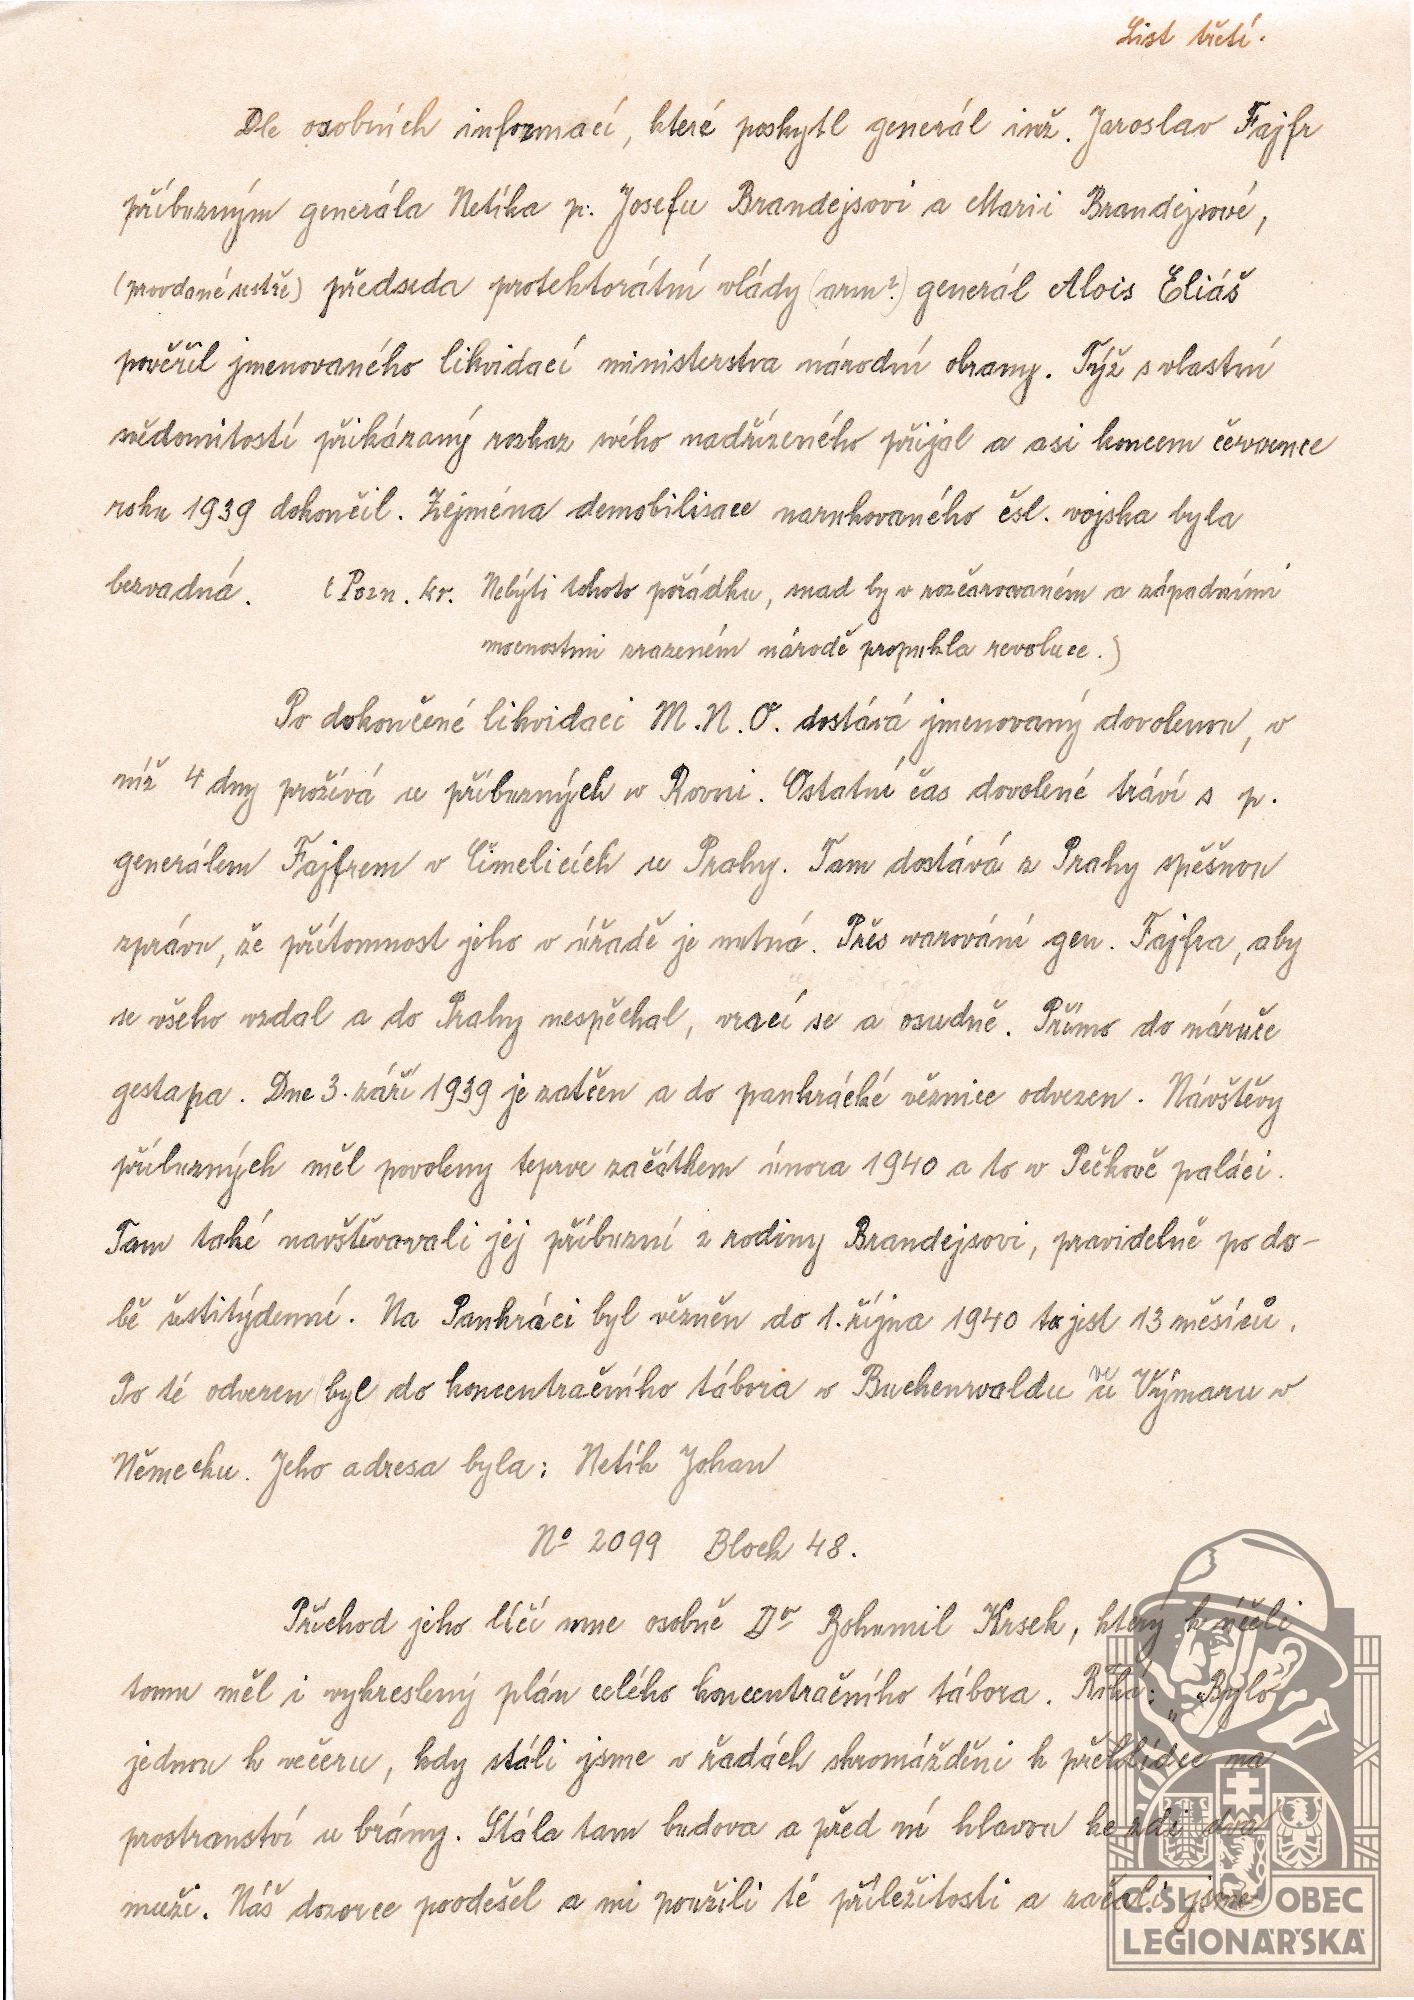 List třetí.
Dle osobních informací, které poskytl generál inž. Jaroslav Fajfr
příbuzným generála Netíka p. Josefu Brandejsovi a Marii Brandejsové,
(provdané sestře) předseda protektorátní vlády (arm?.) generál Alois Eliáš
pověřil jmenovaného likvidací ministerstva národní obrany. Týž s vlastní
svědomitostí přikázaný rozkaz svého nadřízeného přijal a asi koncem července
roku 1939 dokončil. Zejména demobilisace narukovaného čsl. vojska byla
bezvadná. (Pozn. kr. Nebýti tohoto pořádku, snad by v rozčarovaném a západními
mocnostmi zrazeném národě propukla revoluce.)
Po dokončené likvidaci M.N.O. dostává jmenovaný dovolenou, v
níž 4 dny prožívá u příbuzných v Rovni. Ostatní čas dovolené tráví s p.
generálem Fajfrem v Čimelicích u Prahy. Tam dostává z Prahy spěšnou
zprávu, že přítomnost jeho v úřadě je nutná. Přes varování gen. Fajfra, aby
se všeho vzdal a do Prahy nespěchal, vrací se a osudně. Přímo do náruče
gestapa. Dne 3. září 1939 je zatčen a do pankrácké věznice odvezen. Návštěvy
příbuzných měl povoleny teprve začátkem února 1940 a to v Pečkově paláci.
Tam také navštěvovali jej příbuzní z rodiny Brandejsovi, pravidelně po do-
bě šestitýdenní. Na Pankráci byl vězněn do 1. října 1940 to jest 13 měsíců.
Po té odvezen byl do koncentračního tábora v Buchenwaldu ve Výmaru v
Německu. Jeho adresa byla: Netík Johan
No 2099 Block 48.
Příchod jeho líčí mne osobně Dr Bohumil Krsek, který k účeli
tomu měl i vykreslený plán celého koncentračního tábora. Říká: „Bylo
jednou k večeru, kdy stáli jsme v řadách shromážděni k přehlídce na
prostranství u brány. Stála tam budova a před ní hlavou ke zdi dva
muži. Náš dozorce poodešel a mi použili té příležitosti a začali jsme
ČSL. OBEC
LEGIONÁŘSKÁ